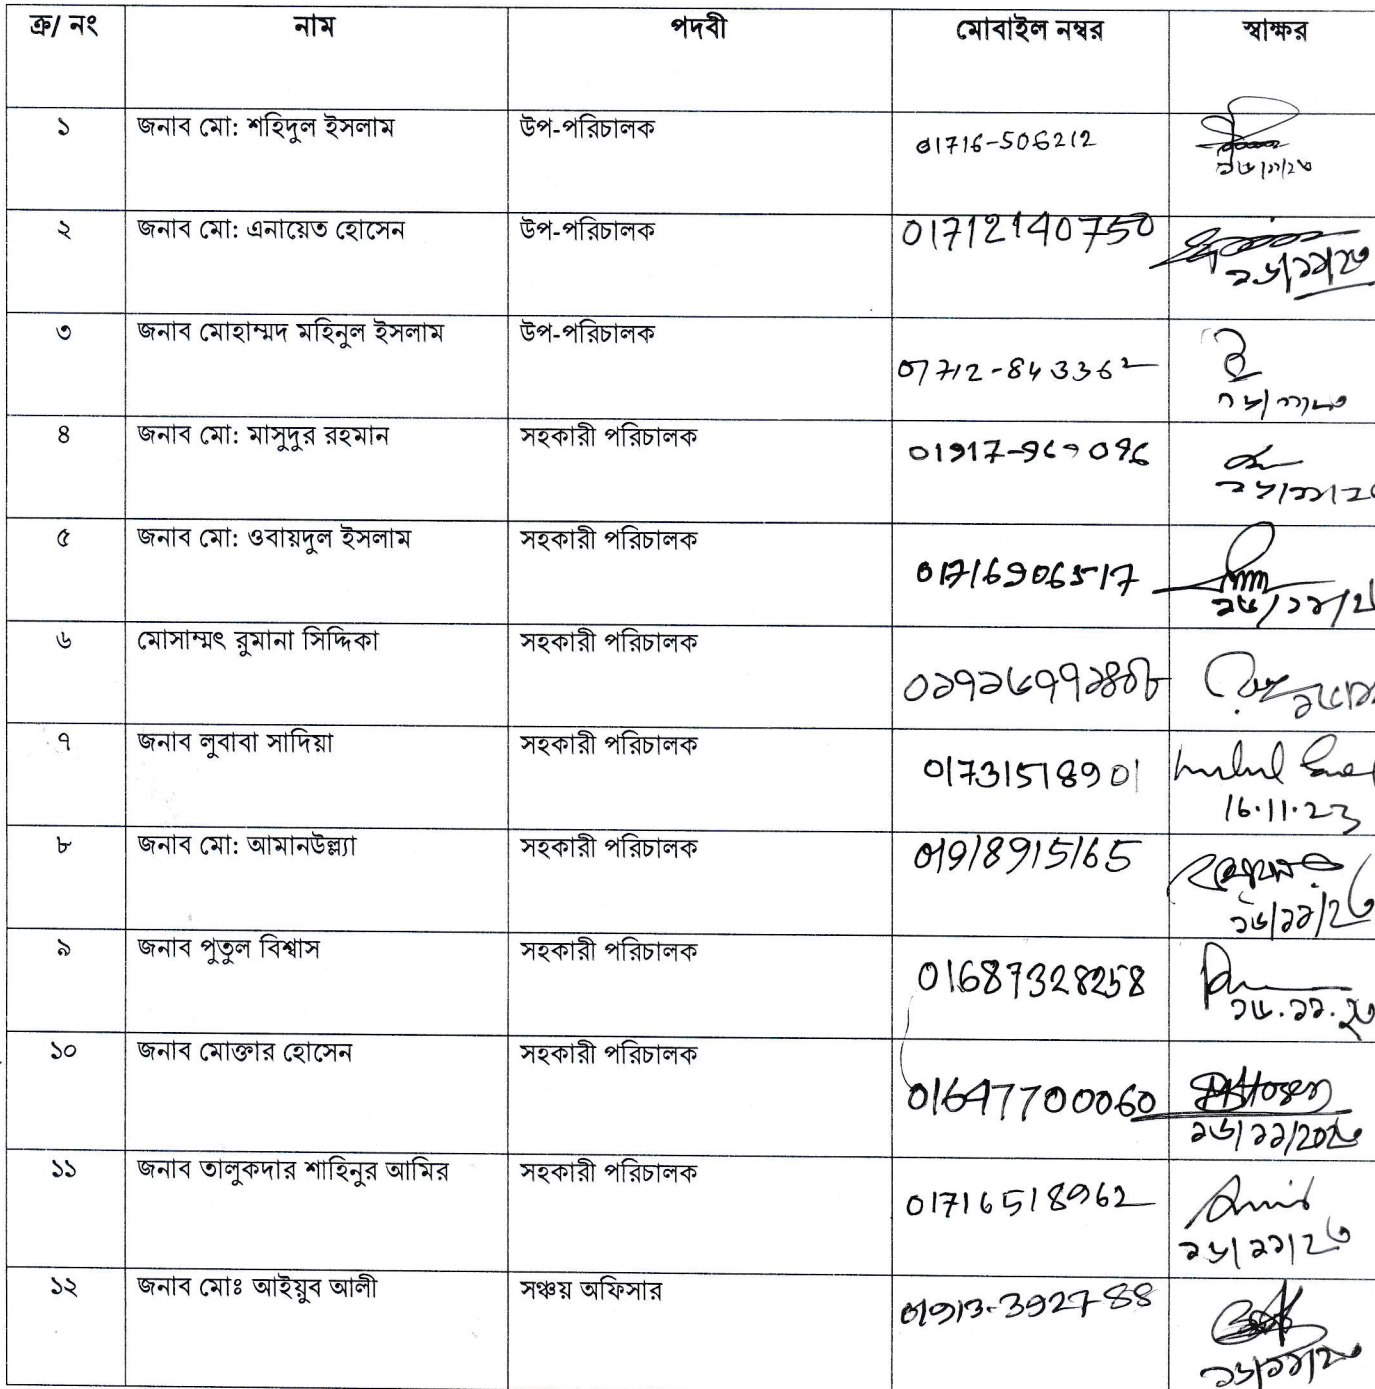 ক্র/ নং নাম পদবী মোবাইল নম্বর স্বাক্ষর
১ জনাব মো: শহিদুল ইসলাম উপ-পরিচালক 01716-506212 ১৬/১১/২৩
২ জনাব মো: এনায়েত হোসেন উপ-পরিচালক 01712140750 ১৬/১১/২৩
৩ জনাব মোহাম্মদ মহিনুল ইসলাম উপ-পরিচালক 01712-843362
৪ জনাব মো: মাসুদুর রহমান সহকারী পরিচালক ১৬/১১/২৩
৫ জনাব মো: ওবায়দুল ইসলাম সহকারী পরিচালক 01716906517 ১৬/১১/২
৬ মোসাম্মৎ রুমানা সিদ্দিকা সহকারী পরিচালক
৭ জনাব লুবাবা সাদিয়া সহকারী পরিচালক 01731518901
16.11.23
৮ জনাব মো: আমানউল্ল্যা সহকারী পরিচালক 01918915165 ১৬/১১/২৩
৯ জনাব পুতুল বিশ্বাস সহকারী পরিচালক 01687328258 ১৬.১১.২৩
১০ জনাব মোক্তার হোসেন সহকারী পরিচালক 01647700060 ১৬/১১/২০২৩
১১ জনাব তালুকদার শাহিনুর আমির সহকারী পরিচালক 01716518962 Amir
১৬/১১/২৩
১২ জনাব মোঃ আইয়ুব আলী সঞ্চয় অফিসার 01913-392788 ১৬/১১/২৩